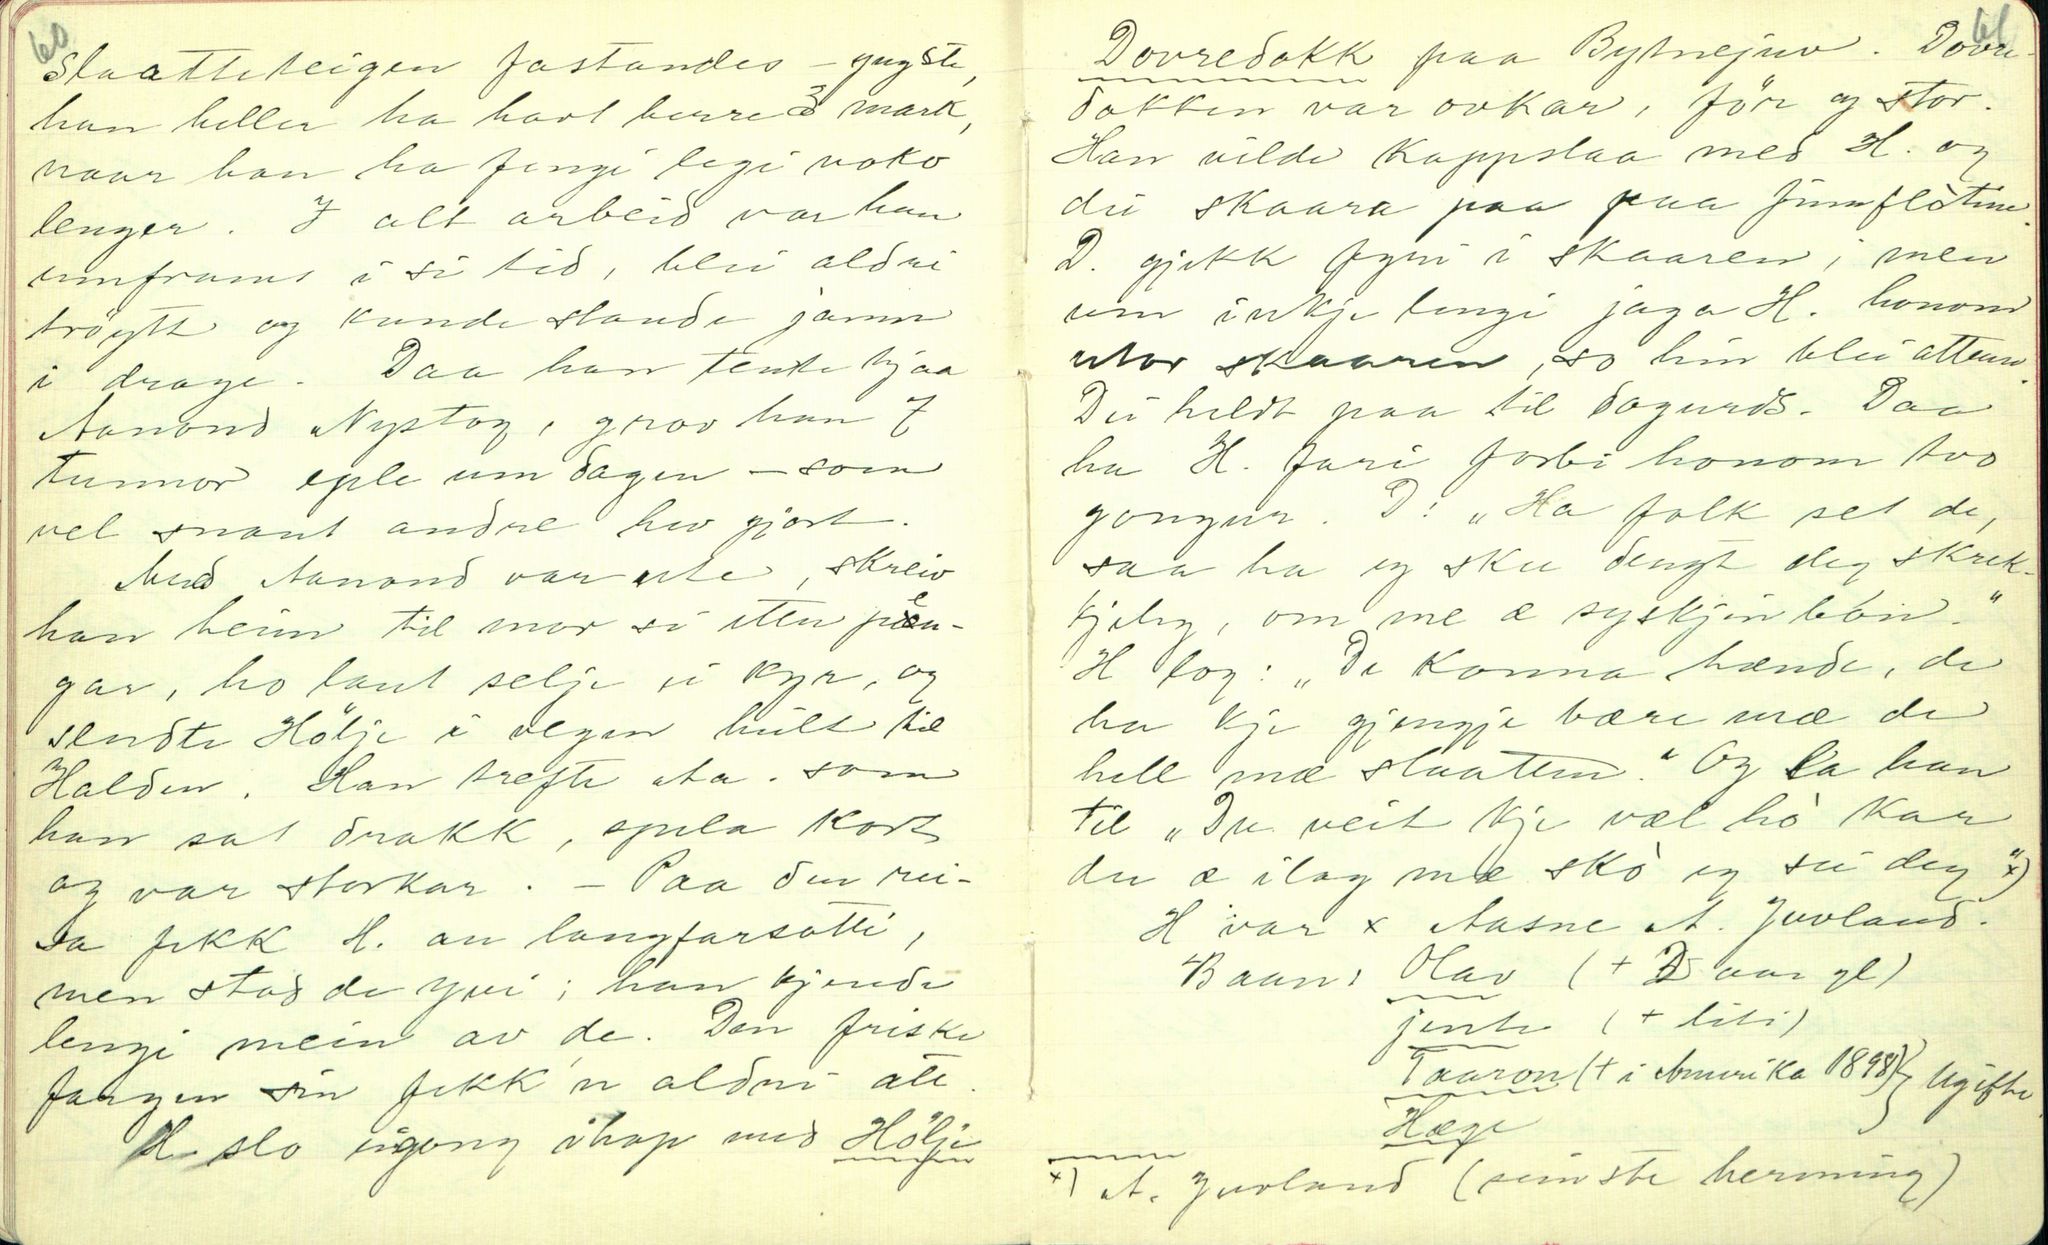 60
Slaatteteigen fastandes – yngste,
han heller ha havt berre 3 mark,
naar han ha fengi legi noko
lenger. I alt arbeid var han
umframs i si tid, blei aldri
tröytt og kunde stande jamn
i drage. Daa han tente hjaa
Aanond Nystog, grov han 7
tunnor eple um dagen – som
vel snaut andre hev gjort.
Med Aanond var ute, skreiv
han heim til mor si etter pen-
gar, ho laut selje ei kyr, og
sendte Hölje i vegen heilt til
Halden. Han trefte Aa. som
han sat drakk, spela kort
og var storkar. – Paa den rei-
sa fekk H. an langfarsotti,
men stod de yvi; han kjende
lengi mein av de. Den friske
fargen sin fekk'n aldri att.
H slo eigong ihop med Hölje
61
Dovredokk paa Bytnejuv. Dovre-
dokken var ovkar, för og stor.
Han vilde kappslaa med H. og
dei skaara paa paa Jimflòtine.
D. gjekk fyri i skaaren, men
um inkje lengi jaga H. honom
utor skaaren, so hin blei attum.
Dei heldt paa til dogurds. Daa
ha H. fari forbi honom tvo
gongur. D: „Ha folk set de,
saa ha eg sku dengt deg skrek-
kjeleg, om me æ syskjinbòn."
H log: „De konna hænde, de
ha kje gjengje bære mæ de
hell mæ slaatten." Og la han
til „Du veit kje væl hò kar
du æ ilag mæ skò eg sei deg" x)
H var x Aasne A. Juvland.
Baan: Olav (+ 2 aar gl)
jente (+ liti)
Taaron (+ i Amerika 1898) } Ugifte.
Hæge
x) A. Juvland (seinste herming)